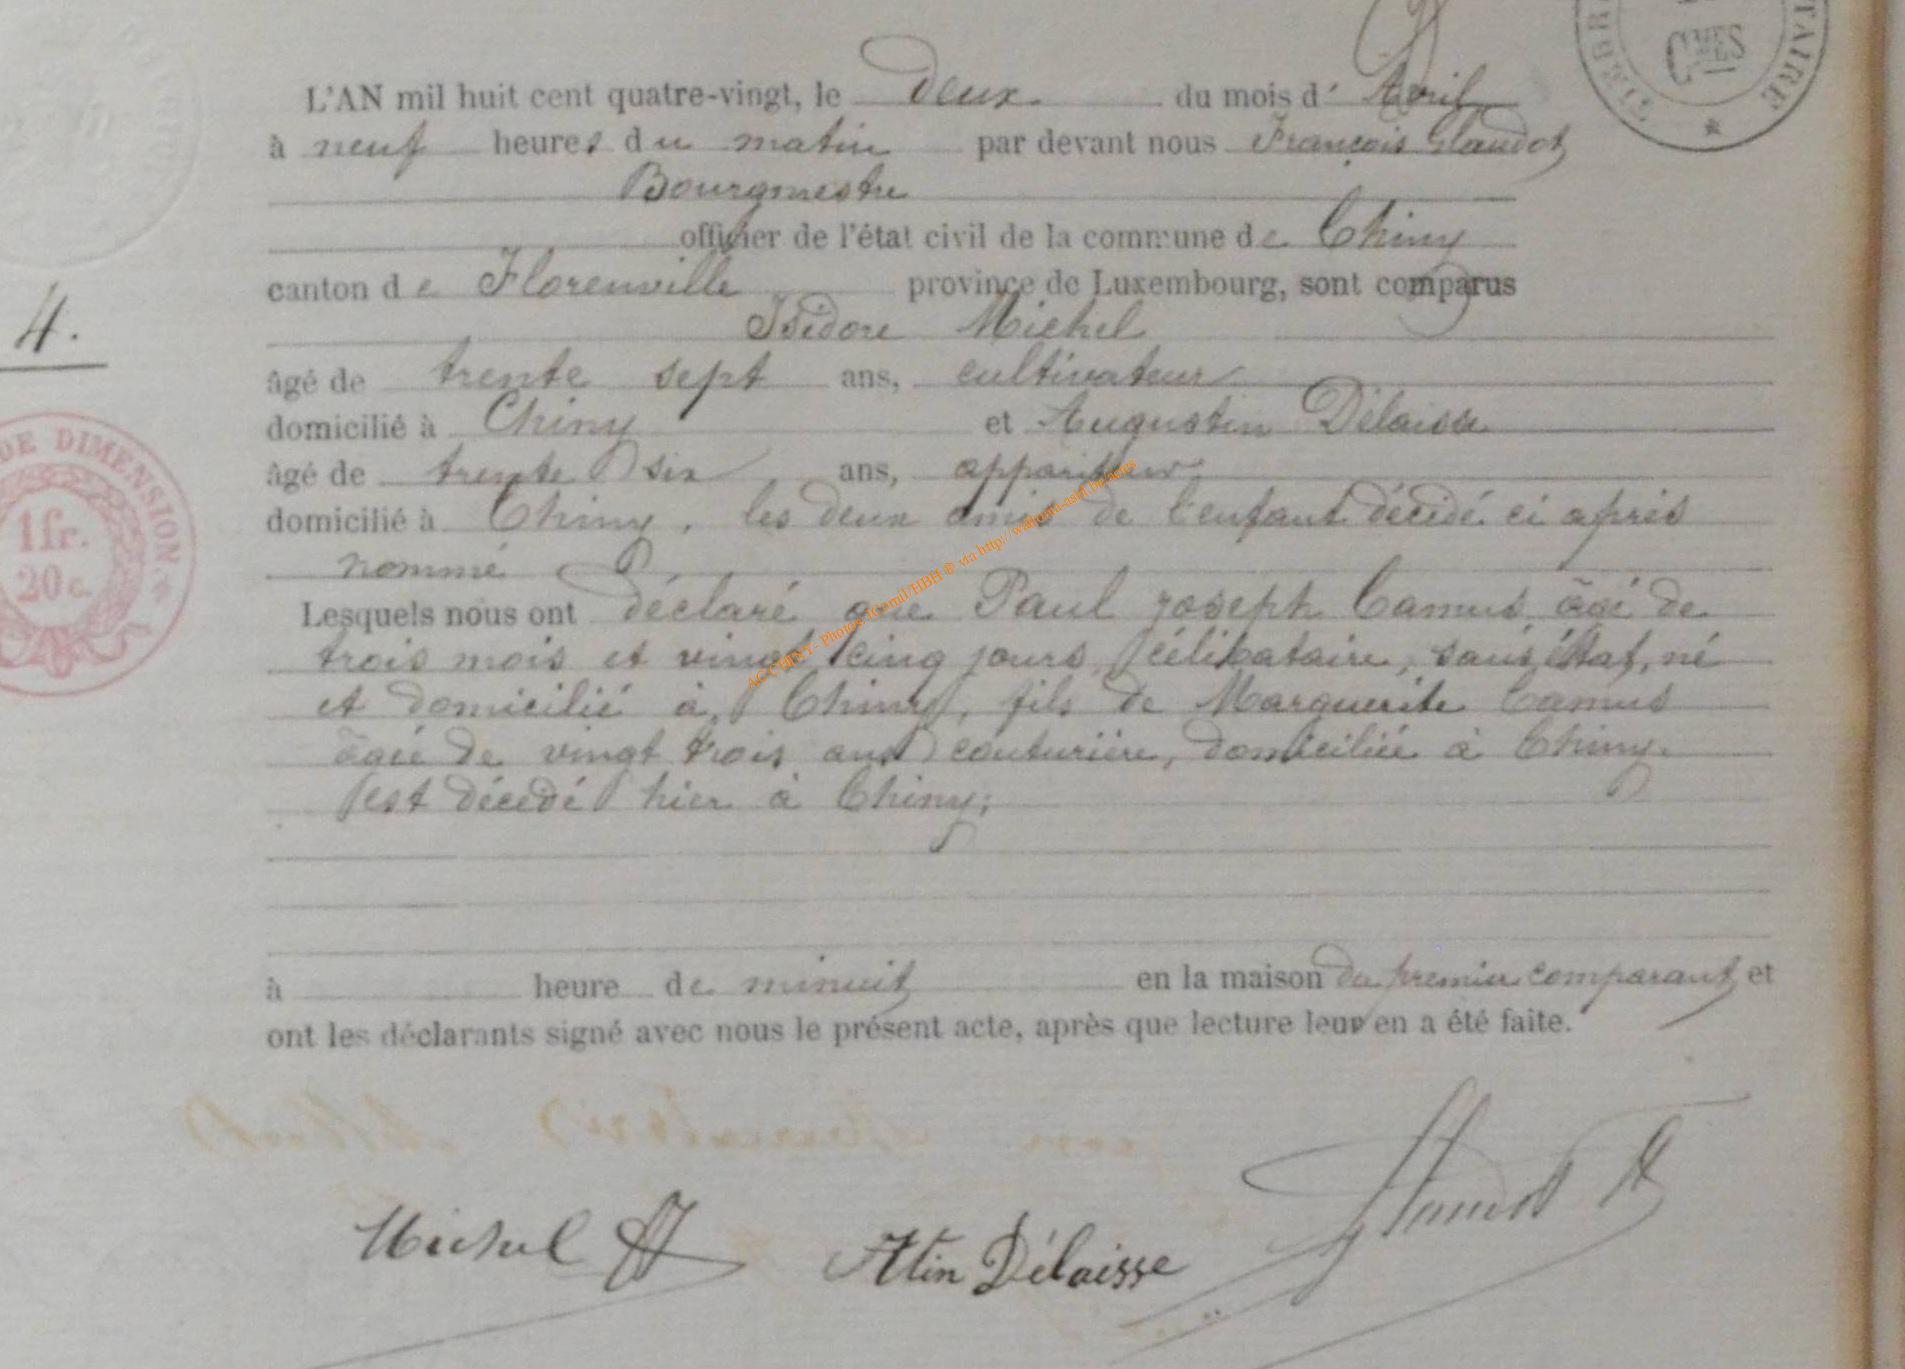 L'AN mil huit cent quatre-vingt, le deux du mois d' Avril
à neuf heures du matin par devant nous François Glaudot
Bourgmestre
officier de l'état civil de la commune de Chiny
canton de Florenville province de Luxembourg, sont comparus
Isidore Michel
âgé de trente sept ans, cultivateur
domicilié à Chiny et Augustin Délaisse
âgé de trente six ans, appariteur
domicilié à Chiny, les deux amis de l'enfant décédé ci après
nommé
Lesquels nous ont déclaré que Paul joseph Camus, âgé de
trois mois et vingt cinq jours, célibataire, sans état, né
et domicilié à Chiny, fils de Marguerite Camus
âgée de vingt trois ans couturière, domiciliée à Chiny.
est décédé hier à Chiny;
à heure de minuit en la maison du premier comparant et
ont les déclarants signé avec nous le présent acte, après que lecture leur en a été faite.
Michel
Atin Délaisse
Glaudot F
4.
DE DIMENSION
1 fr.
20 c.
TIMBRE
CMES
TAIRE
AC CHINY - Photos JGemil/HBH ® via http://wallonia-asbl.be/actes